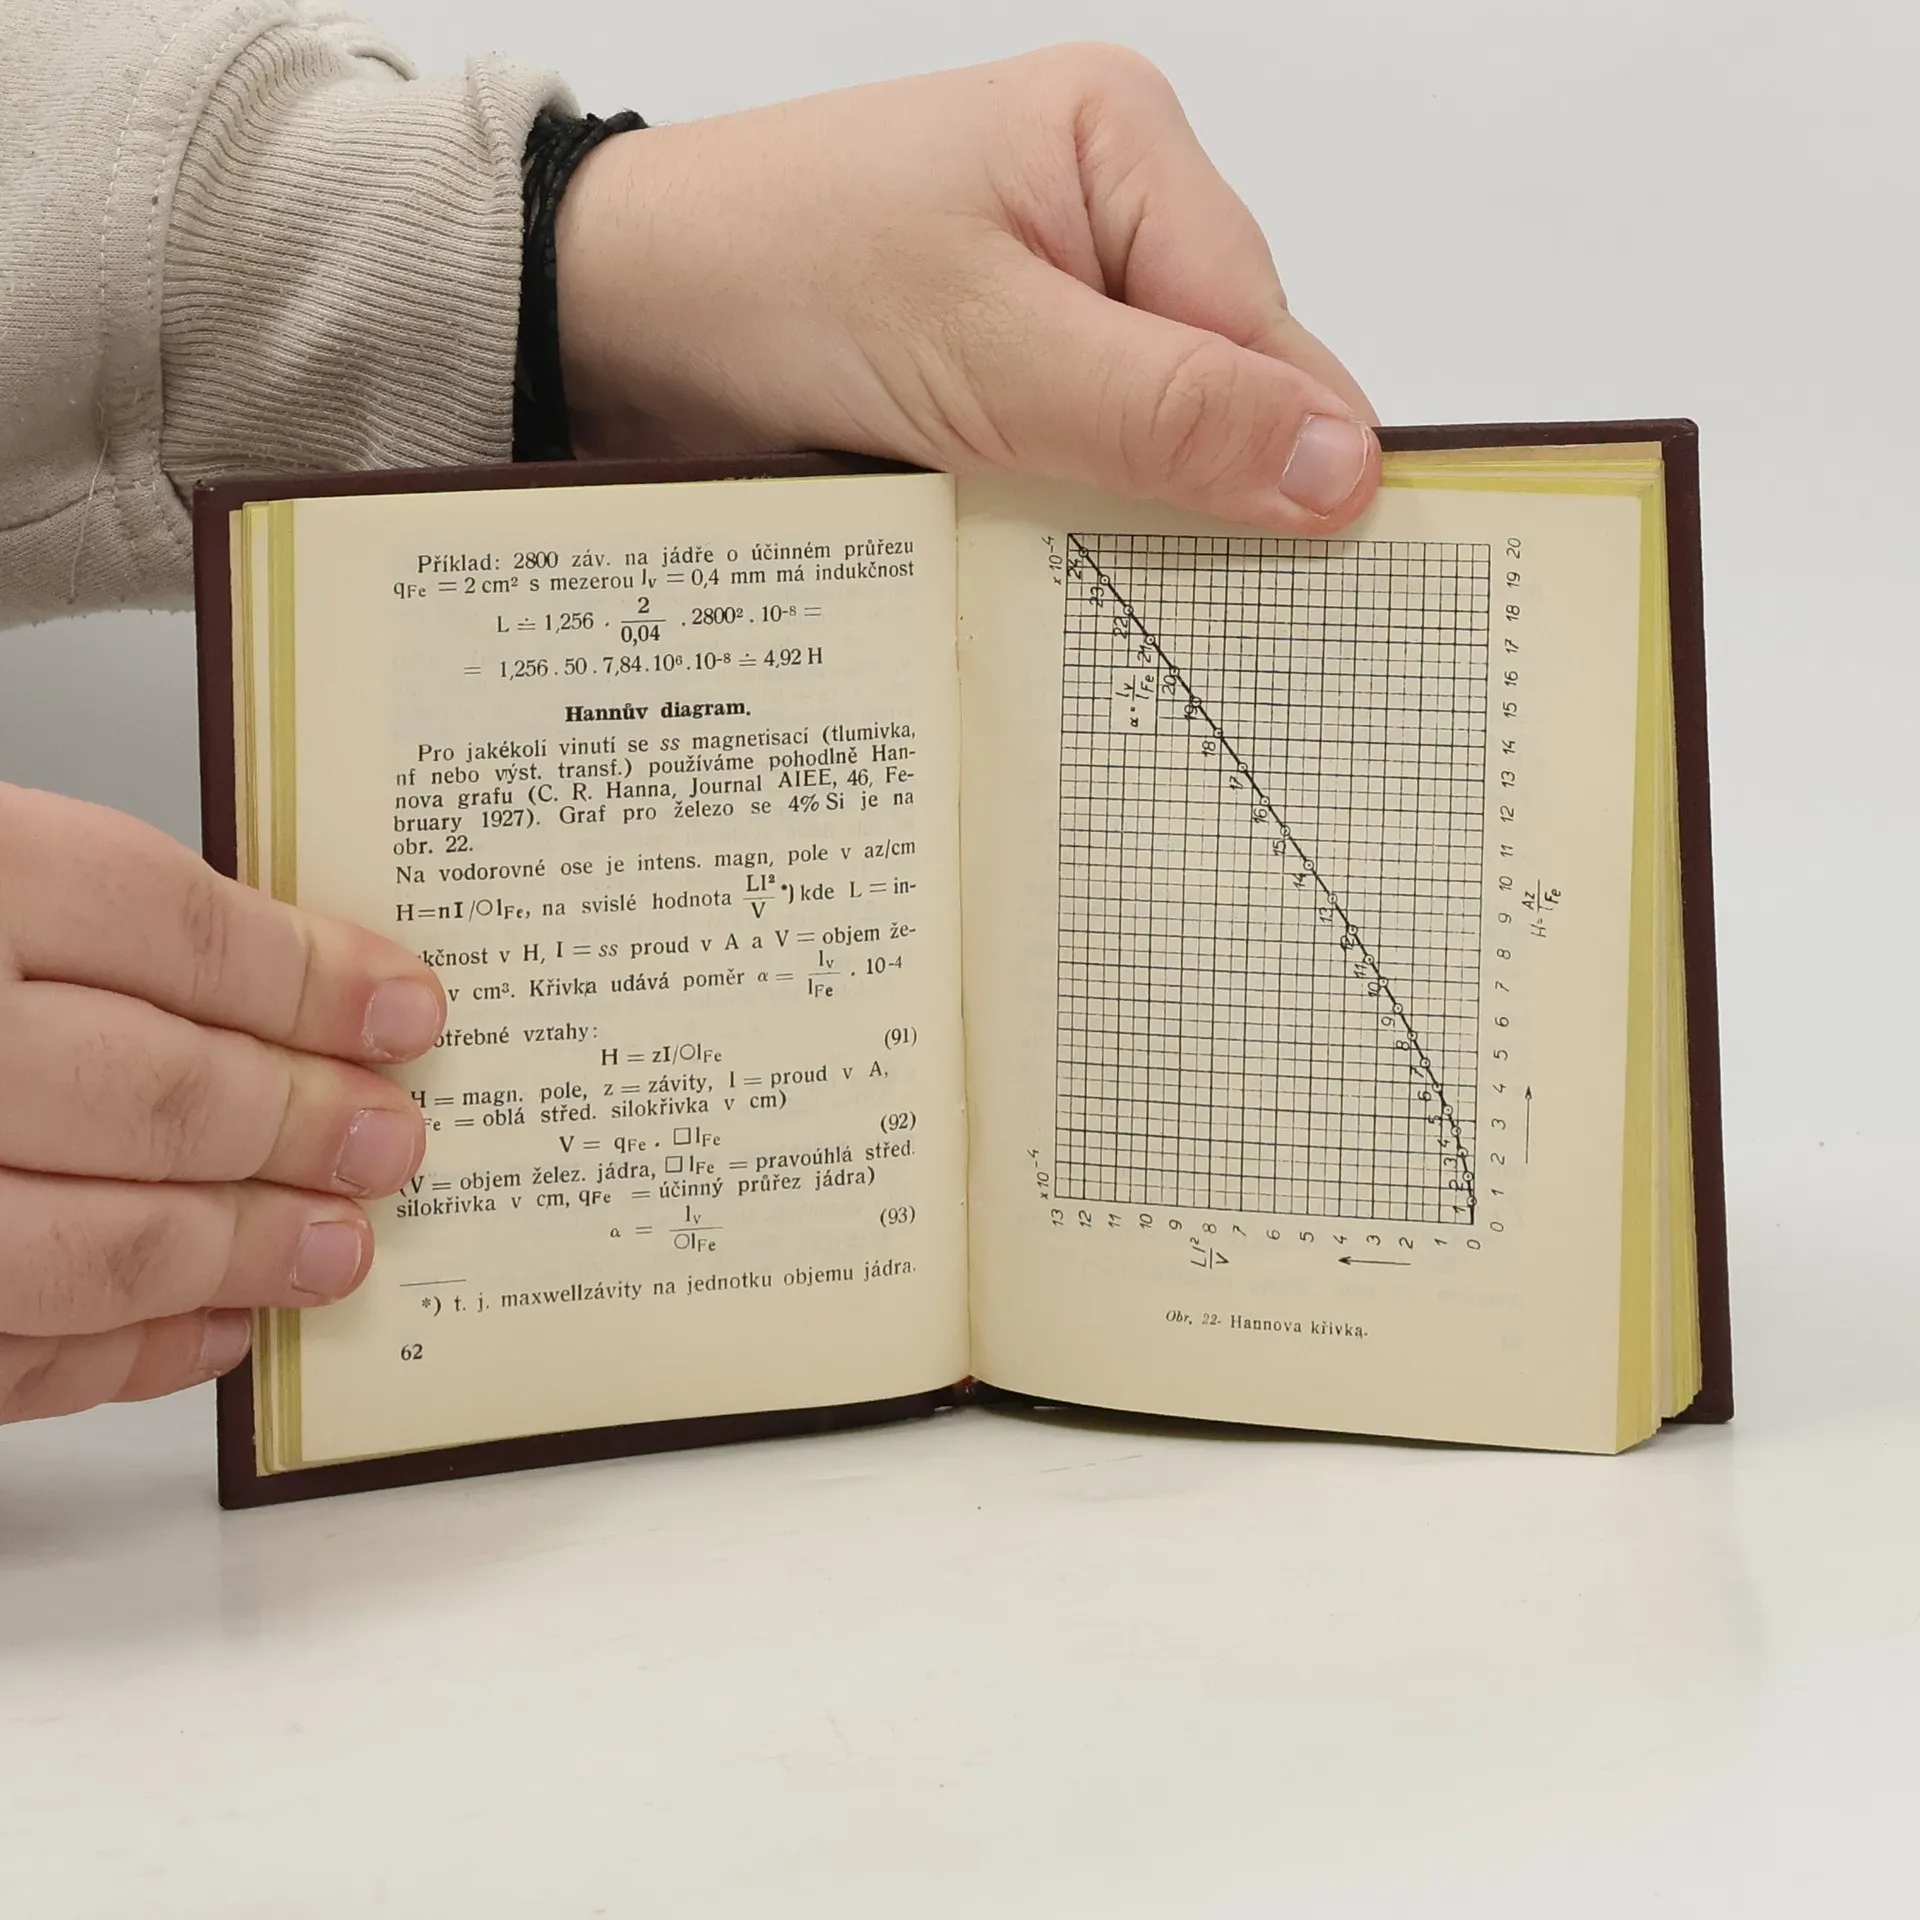 Příklad: 2800 záv. na jádře o účinném průřezu
qFe = 2 cm² s mezerou lv = 0,4 mm má indukčnost
L ≐ 1,256 . 2/0,04 . 2800² . 10-8 =
= 1,256 . 50 . 7,84 . 10⁶ . 10-8 ≐ 4,92 H
Hannův diagram.
Pro jakékoli vinutí se ss magnetisací (tlumivka,
nf nebo výst. transf.) používáme pohodlně Han-
nova grafu (C. R. Hanna, Journal AIEE, 46, Fe-
bruary 1927). Graf pro železo se 4% Si je na
obr. 22.
Na vodorovné ose je intens. magn, pole v az/cm
H=nI/○lFe, na svislé hodnota LI²/V *) kde L = in-
kčnost v H, I = ss proud v A a V = objem že-
v cm³. Křivka udává poměr α = lv/lFe . 10-4
otřebné vztahy:
H = zI/○lFe (91)
H = magn. pole, z = závity, I = proud v A,
Fe = oblá střed. silokřivka v cm)
V = qFe . □lFe (92)
(V = objem želez. jádra, □lFe = pravoúhlá střed.
silokřivka v cm, qFe = účinný průřez jádra)
α = lv/○lFe (93)
*) t. j. maxwellzávity na jednotku objemu jádra.
62
x 10-4
x 10-4
13 12 11 10 9 8 7 6 5 4 3 2 1 0
LI²/V
0 1 2 3 4 5 6 7 8 9 10 11 12 13 14 15 16 17 18 19 20
H= Az/lFe
α = lv/lFe
1 2 3 4 5 6 7 8 9 10 11 12 13 14 15 16 17 18 19 20 21 22 23 24
Obr. 22- Hannova křivka.